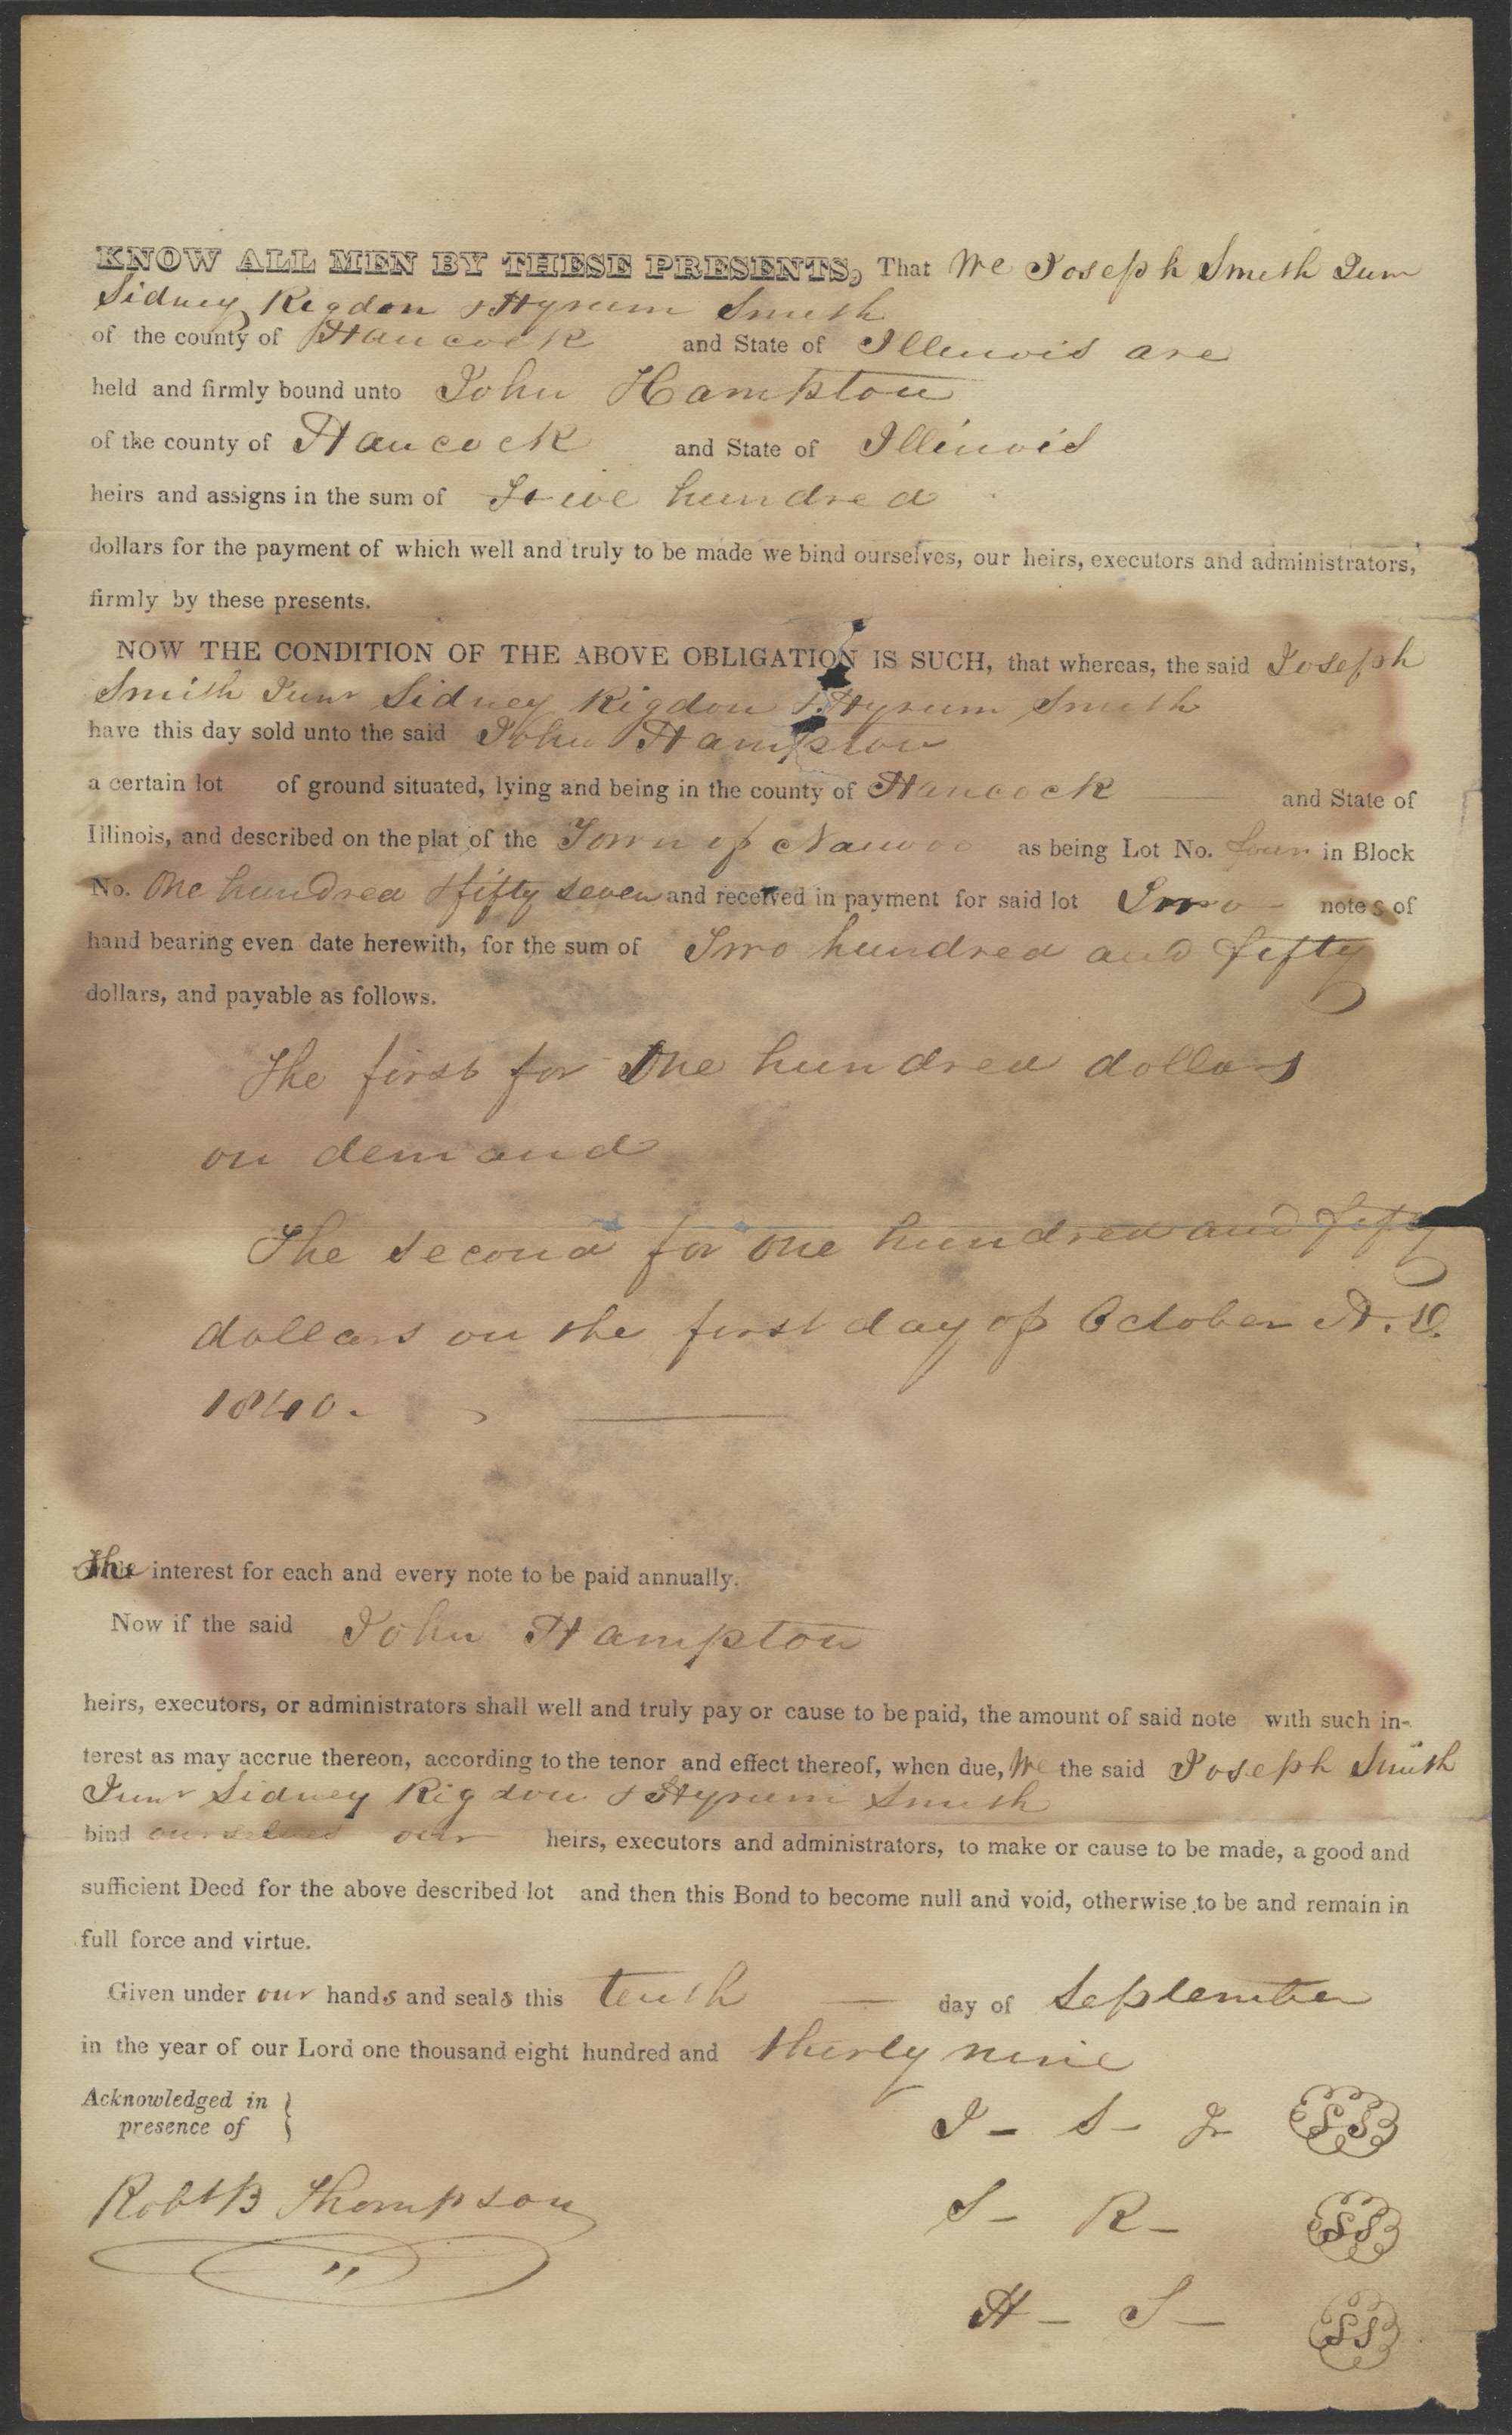 KNOW ALL MEN BY THESE PRESENTS, That We Joseph Smith Junr
Sidney Rigdon & Hyrum Smith
of the county of Hancock and State of Illinois are
held and firmly bound unto John Hampton
of the county of Hancock and State of Illinois
heirs and assigns in the sum of Five hundred
dollars for the payment of which well and truly to be made we bind ourselves, our heirs, executors and administrators,
firmly by these presents.
NOW THE CONDITION OF THE ABOVE OBLIGATION IS SUCH, that whereas, the said Joseph
Smith Junr Sidney Rigdon & Hyrum Smith
have this day sold unto the said John Hampton
a certain lot of ground situated, lying and being in the county of Hancock and State of
Illinois, and described on the plat of the Town of Nauvoo as being Lot No. four in Block
No. One hundred & fifty seven and received in payment for said lot Two notes of
hand bearing even date herewith, for the sum of Two hundred and fifty
dollars, and payable as follows.
The first for One hundred dollars
on demand
The second for One hundred and fifty
dollars on the first day of October A.D.
1840.
The interest for each and every note to be paid annually.
Now if the said John Hampton
heirs, executors, or administrators shall well and truly pay or cause to be paid, the amount of said note with such in-
terest as may accrue thereon, according to the tenor and effect thereof, when due, We the said Joseph Smith
Junr Sidney Rigdon & Hyrum Smith
bind ourselves our heirs, executors and administrators, to make or cause to be made, a good and
sufficient Deed for the above described lot and then this Bond to become null and void, otherwise to be and remain in
full force and virtue.
Given under our hands and seals this tenth day of September
in the year of our Lord one thousand eight hundred and thirty nine
Acknowledged in
presence of
J- S- Jr SS
Robt B Thompson
S- R- SS
H- S- SS